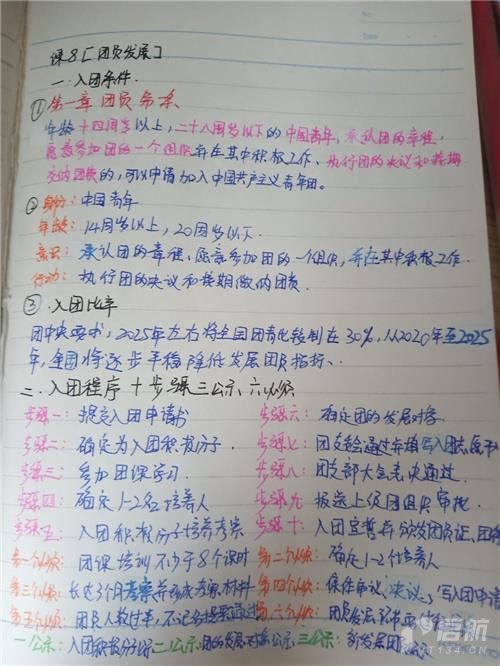 No:
Date
课8［团员发展］
一、入团条件.
① 第一章 团员 第一条
年龄十四周岁以上，二十八周岁以下的中国青年，承认团的章程，
愿意参加团的一个组织并在其中积极工作、执行团的决议和按期
交纳团费的，可以申请加入中国共产主义青年团。
② 身份：中国青年
年龄：14周岁以上，20周岁以下.
意识：承认团的章程、愿意参加团的一个组织，并在其中积极工作.
行动：执行团的决议和按期缴纳团费.
③ 入团比率
团中央要求，2025年左右将全国团青比控制在30%，从2020年至2025
年，全国将逐步平稳降低发展团员指标、
二、入团程序 十步骤 三公示、六必须
步骤一：提交入团申请书 步骤六：确定团的发展对象.
步骤二：确定为入团积极分子. 步骤七：团支委会通过并填写入团志愿书
步骤三：参加团课学习. 步骤八：团支部大会表决通过.
步骤四：确定1-2名培养人 步骤九：报送上级团组织审批.
步骤五：入团积极分子培养考察 步骤十：入团宣誓并颁发团员证、团
第一个必须：团课培训不少于8个课时 第二个必须：确定1-2个培养人
第三个必须：长达3个月考察并形成考察材料 第四个必须：决议，写入团申请
第五个必须：团员人数过半，不记名投票通过 第六个必须：团员发展
一公示：入团积极分子公示 二公示：团的发展对象公示 三公示：新发展团
启航